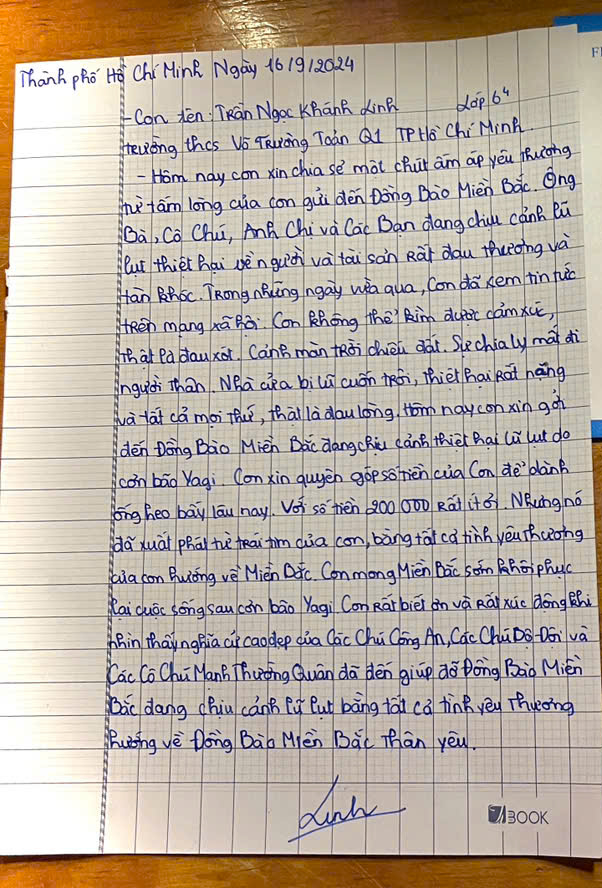 Thành phố Hồ Chí Minh Ngày 16/9/2024
- Con tên: Trần Ngọc Khánh Linh Lớp 6⁴
trường thcs Võ Trường Toản Q1 TP Hồ Chí Minh.
- Hôm nay con xin chia sẻ một chút ấm áp yêu thương
từ tấm lòng của con gửi đến Đồng Bào Miền Bắc. Ông
Bà, Cô Chú, Anh Chị và Các Bạn đang chịu cảnh lũ
lụt thiệt hại về người và tài sản rất đau thương và
tàn khốc. Trong những ngày vừa qua, Con đã xem tin tức
trên mạng xã hội. Con không thể kìm được cảm xúc,
thật là đau xót. Cảnh màn trời chiếu đất. Sự chia ly mất đi
người thân. Nhà cửa bị lũ cuốn trôi, thiệt hại rất nặng
và tất cả mọi thứ, thật là đau lòng. Hôm nay con xin gởi
đến Đồng Bào Miền Bắc đang chịu cảnh thiệt hại lũ lụt do
cơn bão Yagi. Con xin quyên góp số tiền của Con để dành
ống heo bấy lâu nay. Với số tiền 200 000 rất ít ỏi. Nhưng nó
đã xuất phát từ trái tim của con, bằng tất cả tình yêu thương
của con hướng về Miền Bắc. Con mong Miền Bắc sớm khôi phục
lại cuộc sống sau cơn bão Yagi. Con rất biết ơn và rất xúc động khi
nhìn thấy nghĩa cử cao đẹp của Các Chú Công An, Các Chú Bộ Đội và
Các Cô Chú Mạnh Thường Quân đã đến giúp đỡ Đồng Bào Miền
Bắc đang chịu cảnh lũ lụt bằng tất cả tình yêu thương
hướng về Đồng Bào Miền Bắc thân yêu.
Linh
BOOK